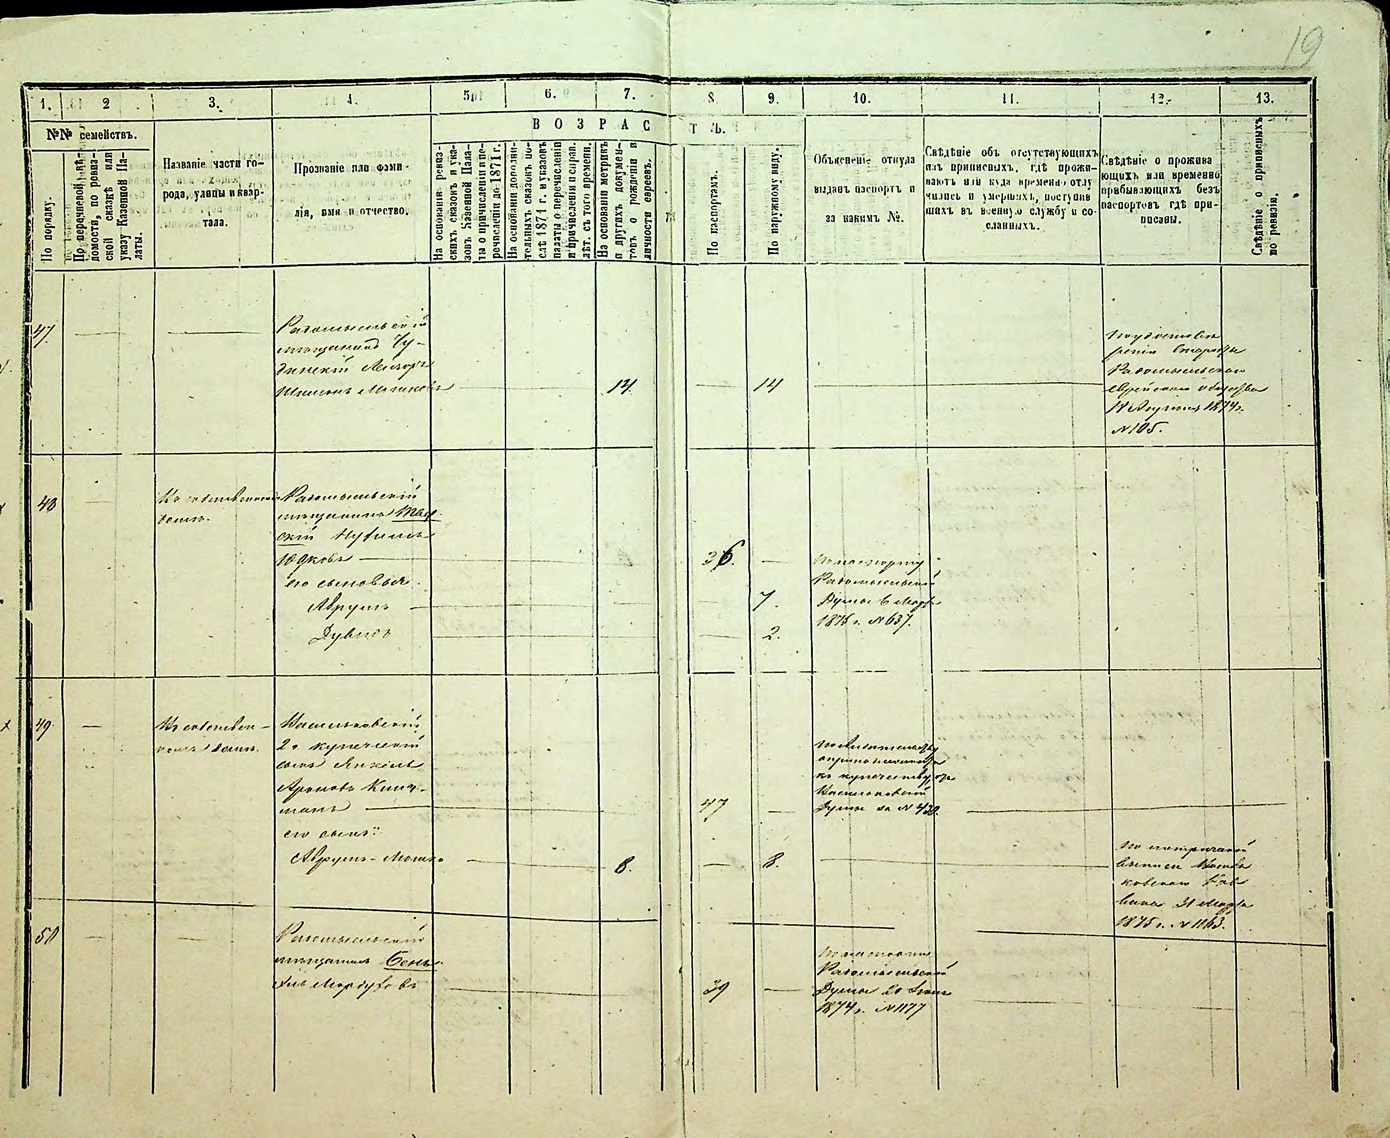 19
1. 2 3. 4. 5 6. 7. 8. 9. 10. 11. 12. 13.
№№ семействъ.
ВОЗРАСТЪ.
По порядку.
По перечневой вѣ-
домости, по ревиз-
ской сказкѣ или
указу Казенной Па-
латы.
Названіе части го-
рода, улицы и квар-
тала.
Прозваніе или фами-
лія, имя и отчество.
На основаніи ревиз-
скихъ сказокъ и ука-
зовъ Казенной Пала-
ты о причисленіи и пе-
речисленіи до 1871 г.
На основаніи дополни-
тельныхъ сказокъ по-
слѣ 1871 г. и указовъ
палаты о перечисленіи
и причисленіи и справ.
лѣт. съ того времени.
На основаніи метрикъ
и другихъ докумен-
товъ о рожденіи и
личности евреевъ.
По паспортамъ.
По наружному виду.
Объясненіе откуда
выданъ паспортъ и
за какимъ №.
Свѣдѣніе объ отсутствующихъ
изъ приписныхъ, гдѣ прожи-
ваютъ или куда временно отлу
чились и умершихъ, поступив
шихъ въ военную службу и со-
сланныхъ.
Свѣдѣніе о прожива
ющихъ или временно
прибывающихъ безъ
паспортовъ гдѣ при-
писаны.
Свѣдѣніе о приписныхъ
по ревизіи.
47.
Радомысльскій
мѣщанинъ Чу-
динскій Лейзоръ
Шмислъ Мошковъ
14.
14
Радомысльскаго
еврейскаго общества
1874 г.
№ 105.
48
Въ собственномъ
домѣ.
Радомысльскій
мѣщанинъ
скій
Юдковъ
его сыновья.
Аврумъ
Дувидъ
36.
7.
2.
По паспорту
Радомысльской
Думы 6 Марта
1875 г. № 637.
49.
Въ собствен-
номъ домѣ.
Васильковскій
2й купеческій
сынъ Янкель
Ароновъ
его сынъ:
Аврумъ-Мошко
47
8.
8.
къ купечеству
Васильковской
Думы за № 430.
По метрической
выписи Василь
ковскаго Рав
вина 31 Марта
1875 г. № 1163.
50
Радомысльскій
мѣщанинъ
39
По паспорту
Радомысльской
Думы 20
1874 г. № 1177